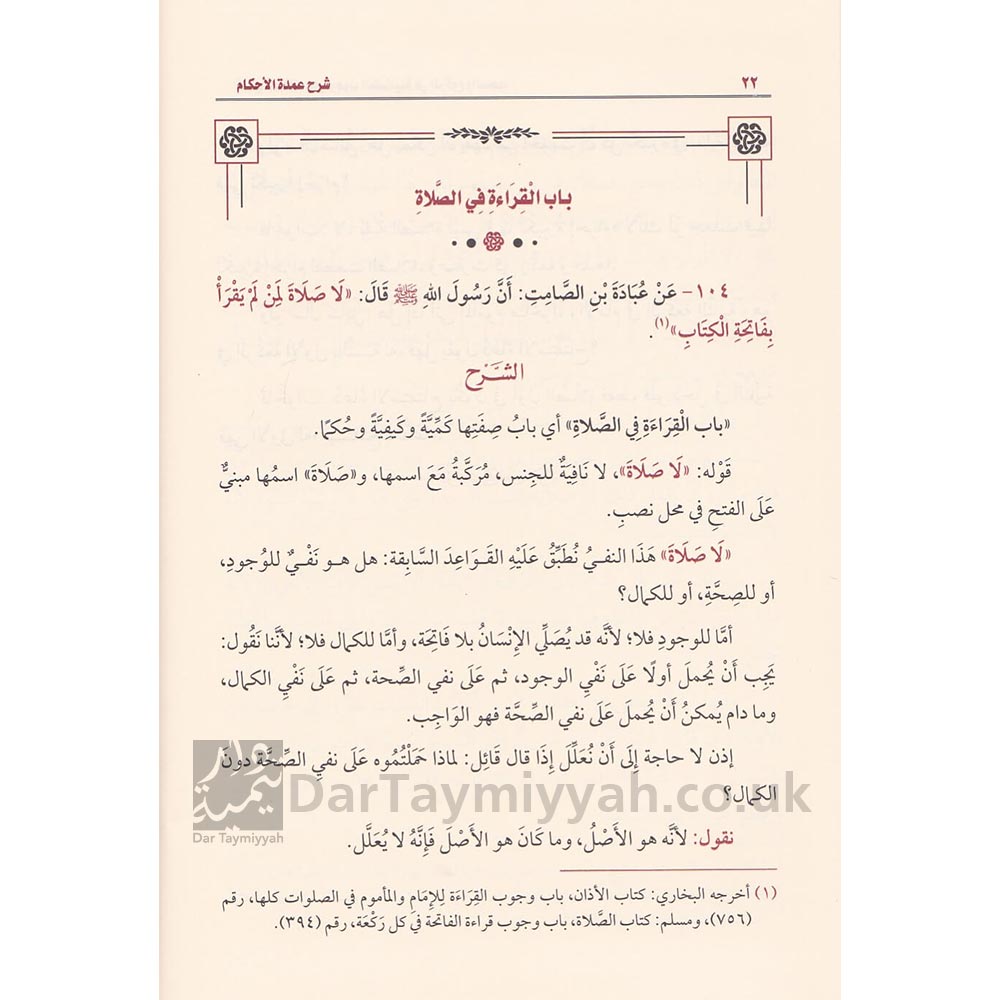 ٢٢
شرح عمدة الأحكام
باب الْقِرَاءَةِ فِي الصَّلَاةِ
١٠٤- عَنْ عُبَادَةَ بْنِ الصَّامِتِ: أَنَّ رَسُولَ اللهِ ﷺ قَالَ: «لَا صَلَاةَ لِمَنْ لَمْ يَقْرَأْ
بِفَاتِحَةِ الْكِتَابِ»(١).
الشَّرْح
«باب الْقِرَاءَةِ فِي الصَّلاةِ» أي بابُ صِفَتِها كَمِّيَّةً وكَيفِيَّةً وحُكمًا.
قَوْله: «لَا صَلَاةَ»، لا نَافِيَةٌ للجِنس، مُرَكَّبةٌ مَعَ اسمها، و«صَلَاةَ» اسمُها مبنيٌّ
عَلَى الفتحِ في محل نصبِ.
«لَا صَلَاةَ» هَذَا النفيُ نُطَبِّقُ عَلَيْهِ القَوَاعِدَ السَّابِقة: هل هو نَفْيٌ للوُجودِ،
أو للصِحَّةِ، أو للكمال؟
أمَّا للوجودِ فلا؛ لأنَّه قد يُصَلِّي الإِنْسَانُ بلا فَاتِحَة، وأمَّا للكمال فلا؛ لأنَّنا نَقُول:
يَجِب أَنْ يُحملَ أولًا عَلَى نَفْيِ الوجود، ثم عَلَى نفي الصِّحة، ثم عَلَى نَفْيِ الكمال،
وما دام يُمكنُ أَنْ يُحملَ عَلَى نفي الصِّحَّة فهو الوَاجِب.
إذن لا حاجة إِلَى أَنْ نُعَلِّلَ إِذَا قال قَائِل: لماذا حَمَلْتُمُوه عَلَى نفيِ الصِّحَّة دونَ
الكمال؟
نقول: لأنَّه هو الأَصْلُ، وما كَانَ هو الأَصْلَ فَإِنَّهُ لا يُعَلَّل.
(١) أخرجه البخاري: كتاب الأذان، باب وجوب القِرَاءَة لِلإِمَامِ والمأموم في الصلوات كلها، رقم
(٧٥٦)، ومسلم: كتاب الصَّلاة، باب وجوب قراءة الفاتحة في كل رَكْعَة، رقم (٣٩٤).
دار تيمية
Dar Taymiyyah
DarTaymiyyah.co.uk